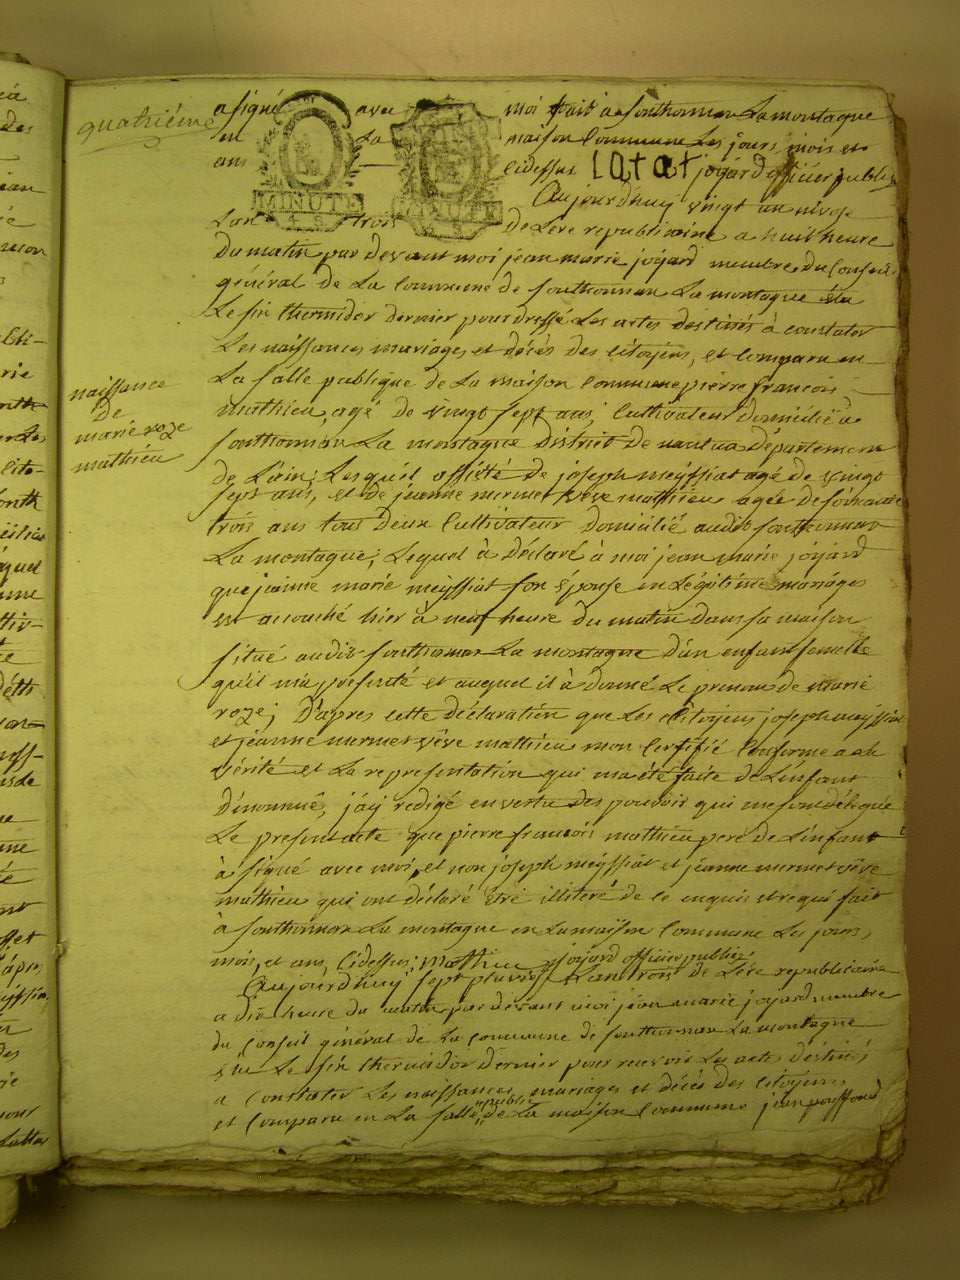 quatriéme
a signé avec moi fait à sonthonnax La montagne
en La maison Commune Les jours, mois et
ans cidessus Latat joyard officier public
MINUTE
Aujourdhuy vingt un nivose
L'an trois de L'ere republicaine a huit heure
du matin par devant moi jean marie joyard membre du Conseil
général de La Commune de sonthonnax La montagne élu
Le six thermidor dernier pour dressé Les actes destinés à constater
Les naissances mariages et décés des Citoyens, et comparu en
naissance
de
marie roze
mathieu
La salle publique de La maison Commune pierre françois
mathieu agé de vingt sept ans, Cultivateur domicilié à
sonthonnax La montagne District de nantua département
de L'ain; Lesquél assisté de joseph meyssiat agé de vingt
sept ans, et de jeanne mermet vève mathieu agée de soixante
trois ans tous deux Cultivateur domicilié audit sonthonnax
La montagne, Lequel à déclaré à moi jean marie joyard
que jeanne marie meyssiat son épouse en Légitime mariages
est accouché hier à neuf heure du matin dans sa maison
situé audit sonthonnax La montagne d'un enfant femelle
qu'il m'a présenté et auquel il à donné Le prenom de marie
roze; D'apres cette déclaration que Les Citoyens joseph meyssiat
et jeanne mermet vève mathieu mon Certifié Conforme a la
vérité et La representation qui ma été faite de L'enfant
dénommé, j'ay redigé en vertu des pouvoir qui me sont délegués
Le present acte que pierre françois mathieu pere de L'enfant
à signé avec moi, et non joseph meyssiat et jeanne mermet vève
mathieu qui ont déclaré étre illiteré de ce enquis et requi fait
à sonthonnax La montagne en La maison Commune Les jours,
mois, et ans, Cidessus; mathieu joyard officier public
Aujourdhuy sept pluviose L'an trois de L'ére republicaine
a dix heure du matin par devant moi jean marie joyard membre
du Conseil général de La Commune de sonthonnax La montagne
élu Le six thermidor dernier pour recevoir Les actes destinés
a Constater Les naissances mariages et décés des Citoyens,
et Comparu en La salle publi de La maison Commune jean